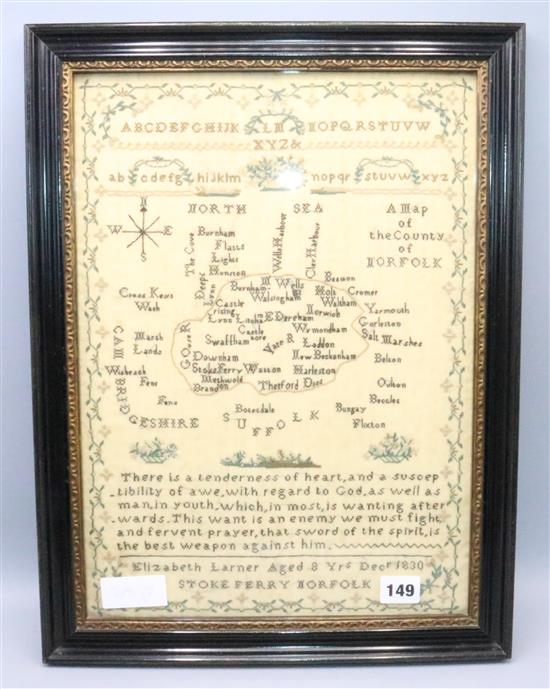 ABCDEFGHIJK LM NOPQRSTUVW
XYZ&
abcdefg hijklm nopqr stuvw xyz
NORTH SEA
A Map
of
the County
of
NORFOLK
N
W E
S
The Cove
Burnham
Flatts
Lights
Hunston
Lynn Deeps
Wells Harbour
Cley Harbour
Burnham
Wells
Walsingham
Holt
Cromer
Waltham
Cross Keys
Wash
Castle
rising
Lynn
Litcham
E Dereham
Norwich
Yarmouth
Gorleston
Salt Marshes
Marsh
Lands
Castle
acre
Swaffham
Wymondham
Yare R
Loddon
Belton
Gouse R
Downham
New Buckenham
Wisbeach
Fens
Stoke Ferry
Watton
Harleston
Methwold
Brandon
Thetford
Oulton
Beccles
Fens
Botesdale
Bungay
Flixton
CAMBRIDGESHIRE
SUFFOLK
There is a tenderness of heart, and a suscep
-tibility of awe, with regard to God, as well as
man, in youth, which, in most, is wanting after
wards. This want is an enemy we must fight,
and fervent prayer, that sword of the spirit, is
the best weapon against him.
Elizabeth Larner Aged 8 Yrs Decr 1830
STOKE FERRY NORFOLK
149